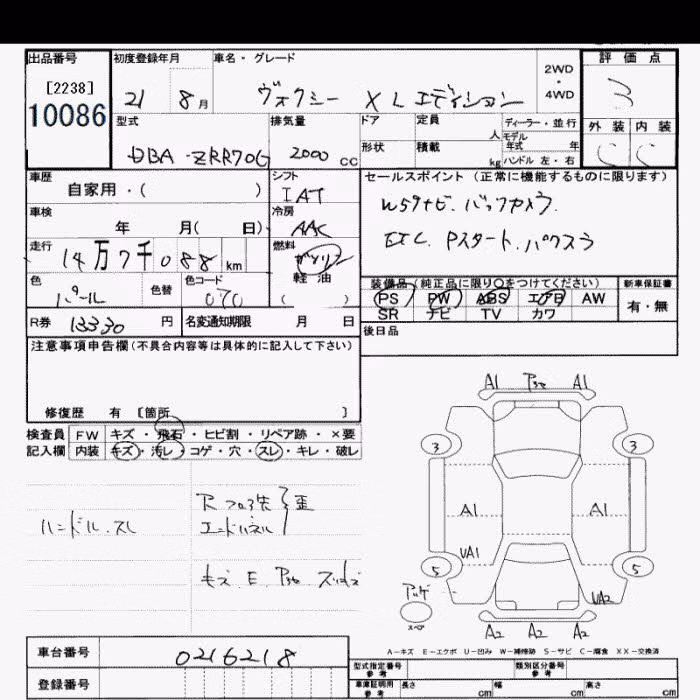 出品番号 初度登録年月 車名・グレード 2WD・4WD 評価点
[2238] 21 8月 ヴォクシー XLエディション 3
10086 型式 排気量 ドア 定員 人 ディーラー・並行 外装 内装
モデル年式 年
DBA-ZRR70G 2000 CC 形状 積載 kg ハンドル 左・右 C C
車歴 自家用・( ) シフト IAT セールスポイント (正常に機能するものに限ります)
車検 年 月( 日) 冷房 AAC W59ナビ.バックカメラ.
走行 14万7千088km 燃料 ガソリン 軽油 ( ) ETC. Pスタート.パワスラ
色 パール 色替 色コード 070 装備品(純正品に限り○をつけてください) 新車保証書
PS PW ABS エアB AW 有・無
R券 13330円 名変通知期限 月 日 SR ナビ TV カワ
後日品
注意事項申告欄(不具合内容等は具体的に記入して下さい)
修復歴 有 [箇所 ]
検査員 FW キズ・飛石・ヒビ割・リペア跡・×要
記入欄 内装 キズ・汚レ・コゲ・穴・スレ・キレ・破レ
ハンドル.スレ
エンドパネル
A1 A1
3 3
A1 A1
UA1
5 5
UA2
スペア
A2 A2 A2
A-キズ E-エクボ U-凹み W-補修跡 S-サビ C-腐食 XX-交換済
車台番号 0216218 型式指定番号 参考 類別区分番号 参考
登録番号 車庫証明用 参考 長さ cm 幅 cm 高さ cm